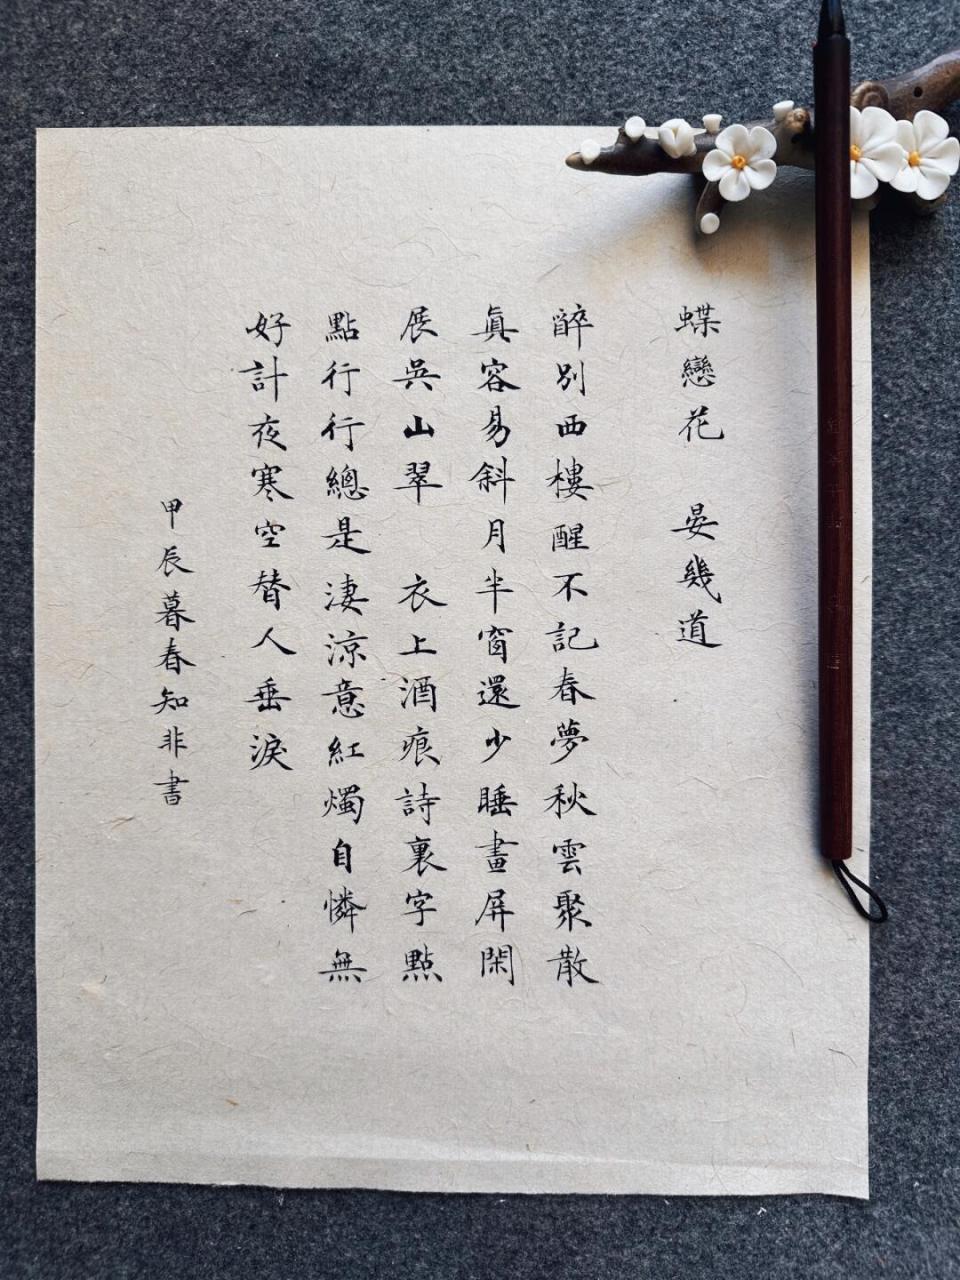 蝶戀花 晏幾道
醉別西樓醒不記春夢秋雲聚散
眞容易斜月半窗還少睡畫屏閑
展吳山翠 衣上酒痕詩裏字點
點行行總是淒涼意紅燭自憐無
好計夜寒空替人垂淚
甲辰暮春知非書